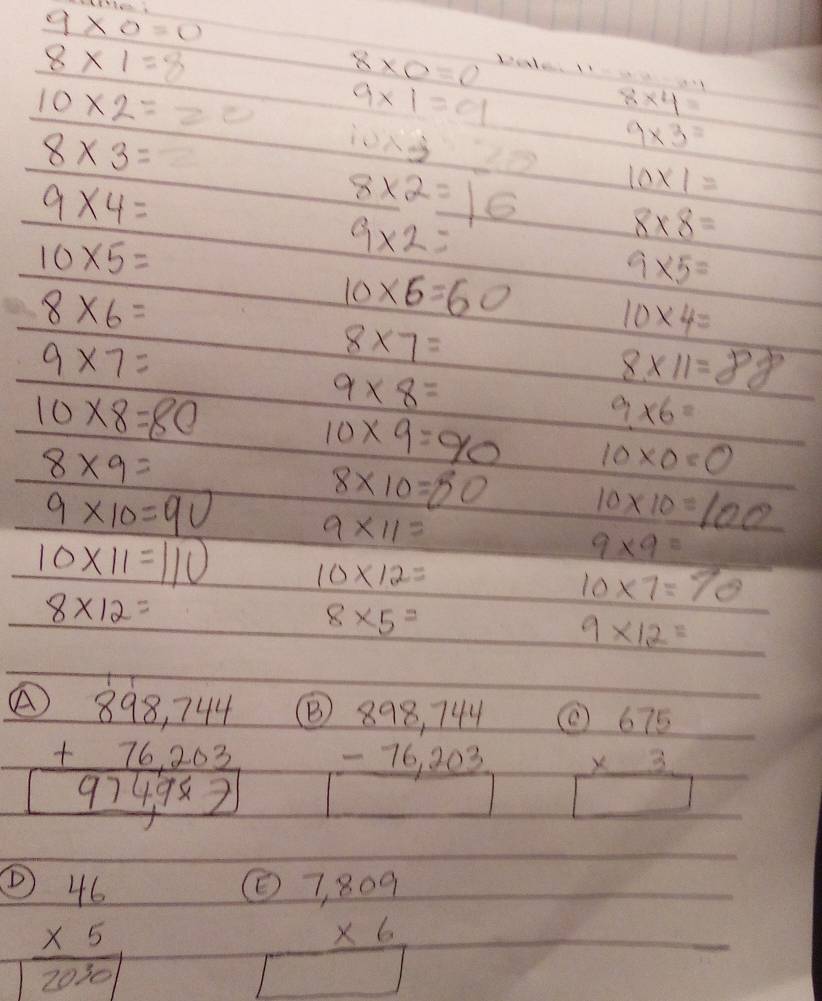 9 × 0 = 0
8 × 1 = 8
10 × 2 = 20
8 × 3 =
9 × 4 =
10 × 5 =
8 × 6 =
9 × 7 =
10 × 8 = 80
8 × 9 =
9 × 10 = 90
10 × 11 = 110
8 × 12 =
8 × 0 = 0
9 × 1 = 9
10 × 3
8 × 2 = 16
9 × 2 =
10 × 6 = 60
8 × 7 =
9 × 8 =
10 × 9 = 90
8 × 10 = 80
9 × 11 =
10 × 12 =
8 × 5 =
8 × 4 =
9 × 3 =
10 × 1 =
8 × 8 =
9 × 5 =
10 × 4 =
8 × 11 = 88
9 × 6 =
10 × 0 = 0
10 × 10 = 100
9 × 9 =
10 × 7 = 70
9 × 12 =
1 1
A 898,744
+ 76,203
B 898,744
- 76,203
C 675
× 3
D 46
× 5
2030
E 7,809
× 6